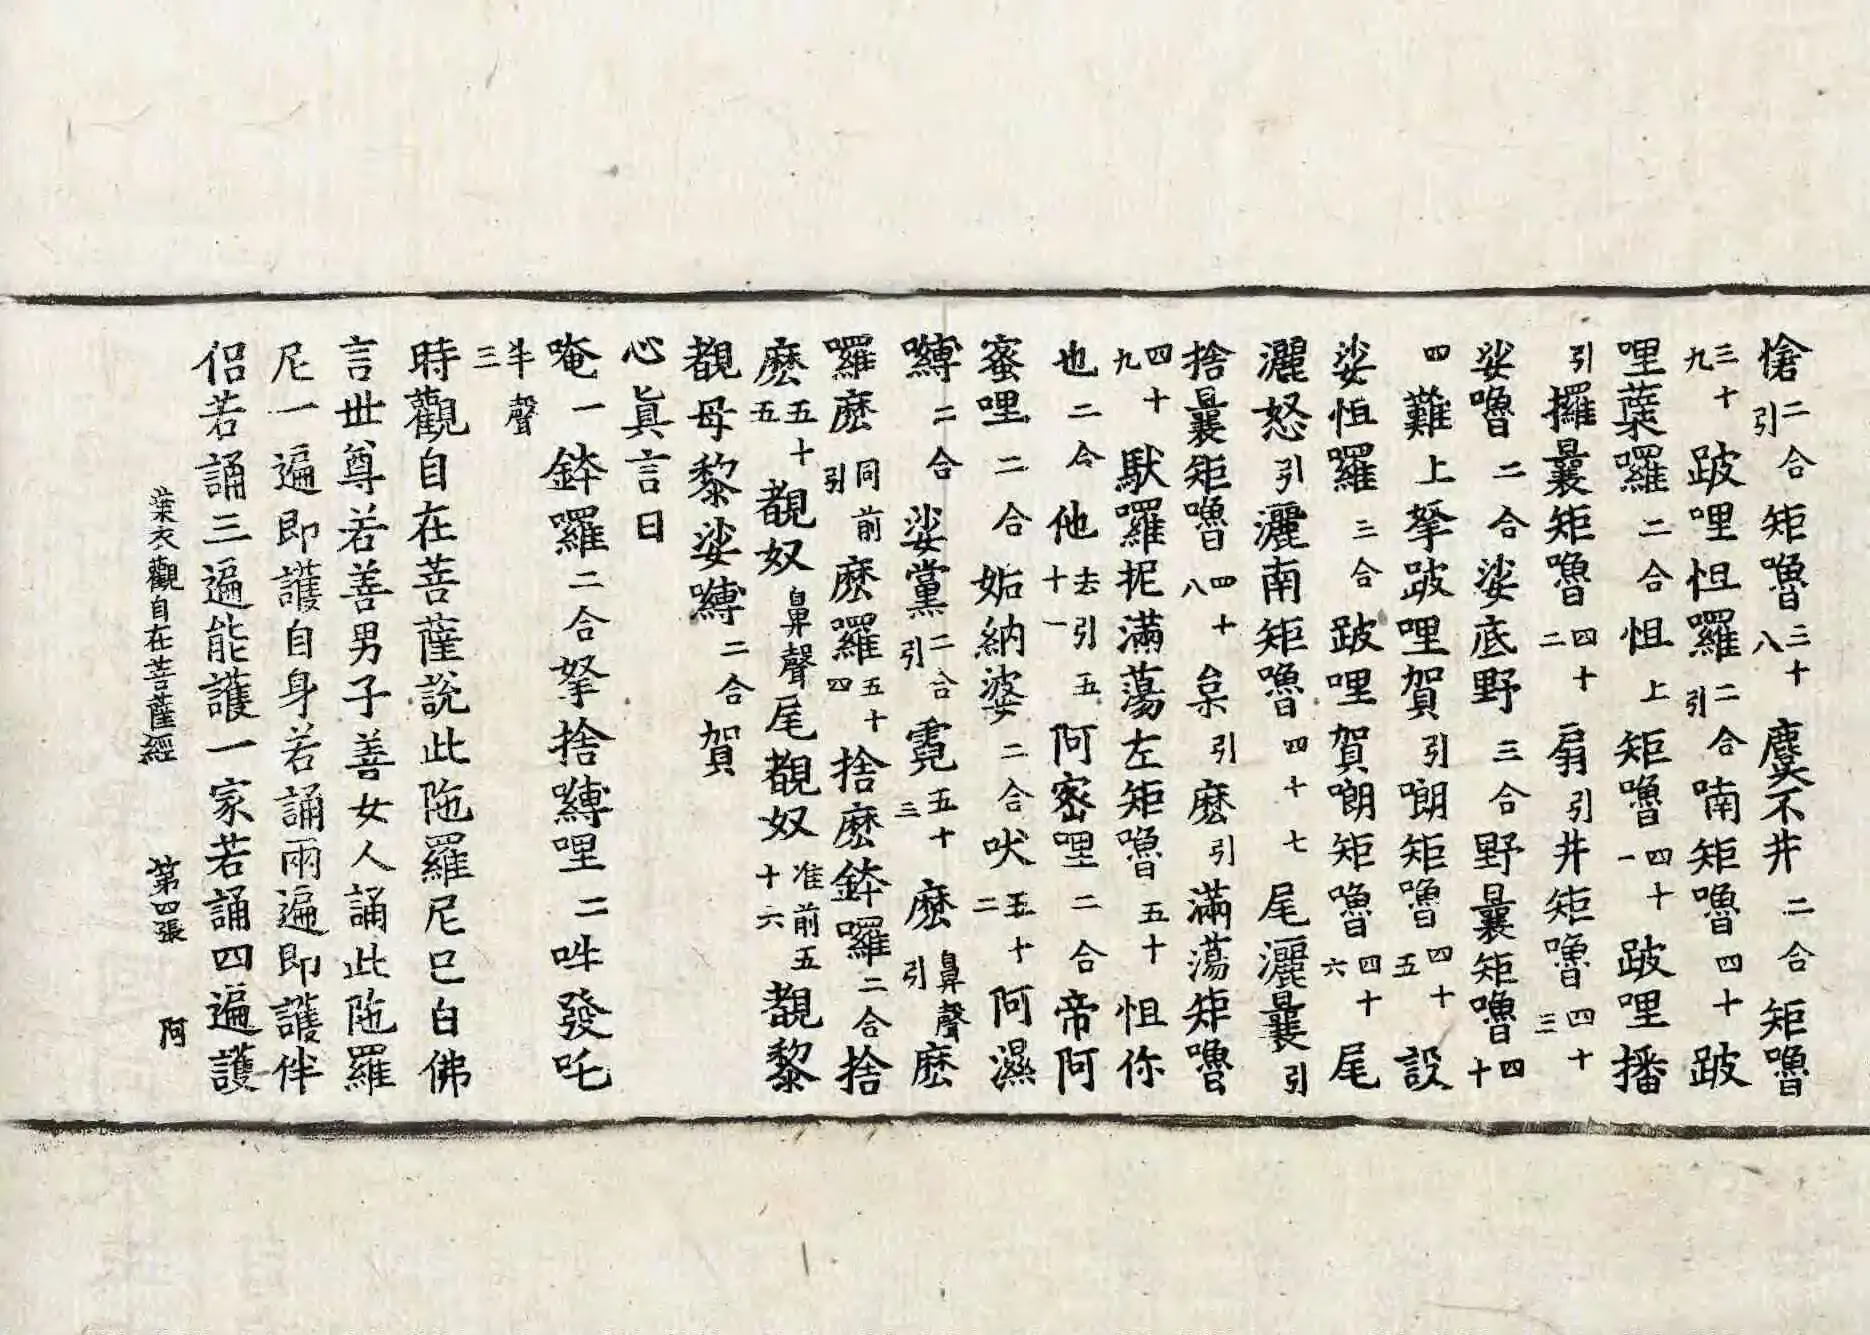 愴二合引矩嚕三十八麌不井二合矩嚕
三十九跛哩怛囉二合引喃矩嚕四十跛
哩蘖囉二合怛上矩嚕四十一跛哩播
引攞曩矩嚕四十二扇引井矩嚕四十三
娑嚕二合娑底野三合野曩矩嚕四十
四難上拏跛哩賀引㘓矩嚕四十五設
娑怛羅三合跛哩賀㘓矩嚕四十六尾
灑怒引灑南矩嚕四十七尾灑曩引
捨曩矩嚕四十八枲引麽引滿蕩矩嚕
四十九馱羅抳滿蕩左矩嚕五十怛你
也二合他去引五十一阿密哩二合帝阿
蜜哩二合妬納婆二合吠五十二阿濕
嚩二合娑黨二合引霓五十三麽鼻聲引麽
囉麽同前引麽羅五十四捨麽鉢囉二合捨
麽五十五覩奴鼻聲尾覩奴准前五十六覩黎
覩母黎娑嚩二合賀
心眞言曰
唵一鉢囉二合拏捨嚩哩二吽發吒
半聲三
時觀自在菩薩說此陁羅尼已白佛
言世尊若善男子善女人誦此陁羅
尼一遍即護自身若誦兩遍即護伴
侶若誦三遍能護一家若誦四遍護
葉衣觀自在菩薩經 第四張 阿